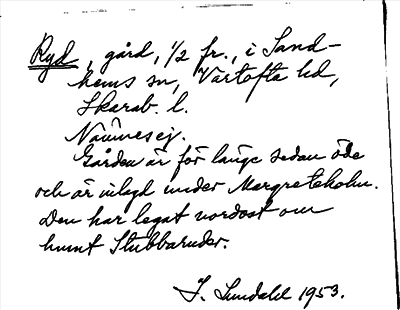 Ryd, gård, 1/2 fr., i Sand-
hems sn, Vartofta hd,
Skarab. l.
Nämnes ej.
Gården är för länge sedan öde
och är inlagd under Margreteholm.
Den har legat nordost om
Stubbaruder.
J. Sundahl 1953.